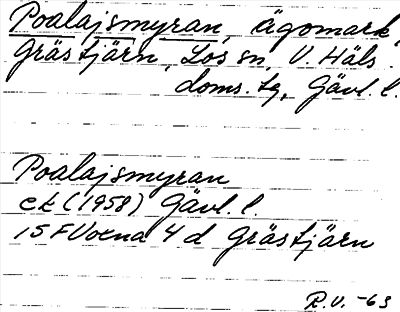 Poalajsmyran, ägomark,
Grästjärn, Los sn, V. Häls.
doms. tg, Gävl. l.
Poalajsmyran
ek (1958) Gävl. l.
15 F Voxna 4 d Grästjärn
R.V. -63